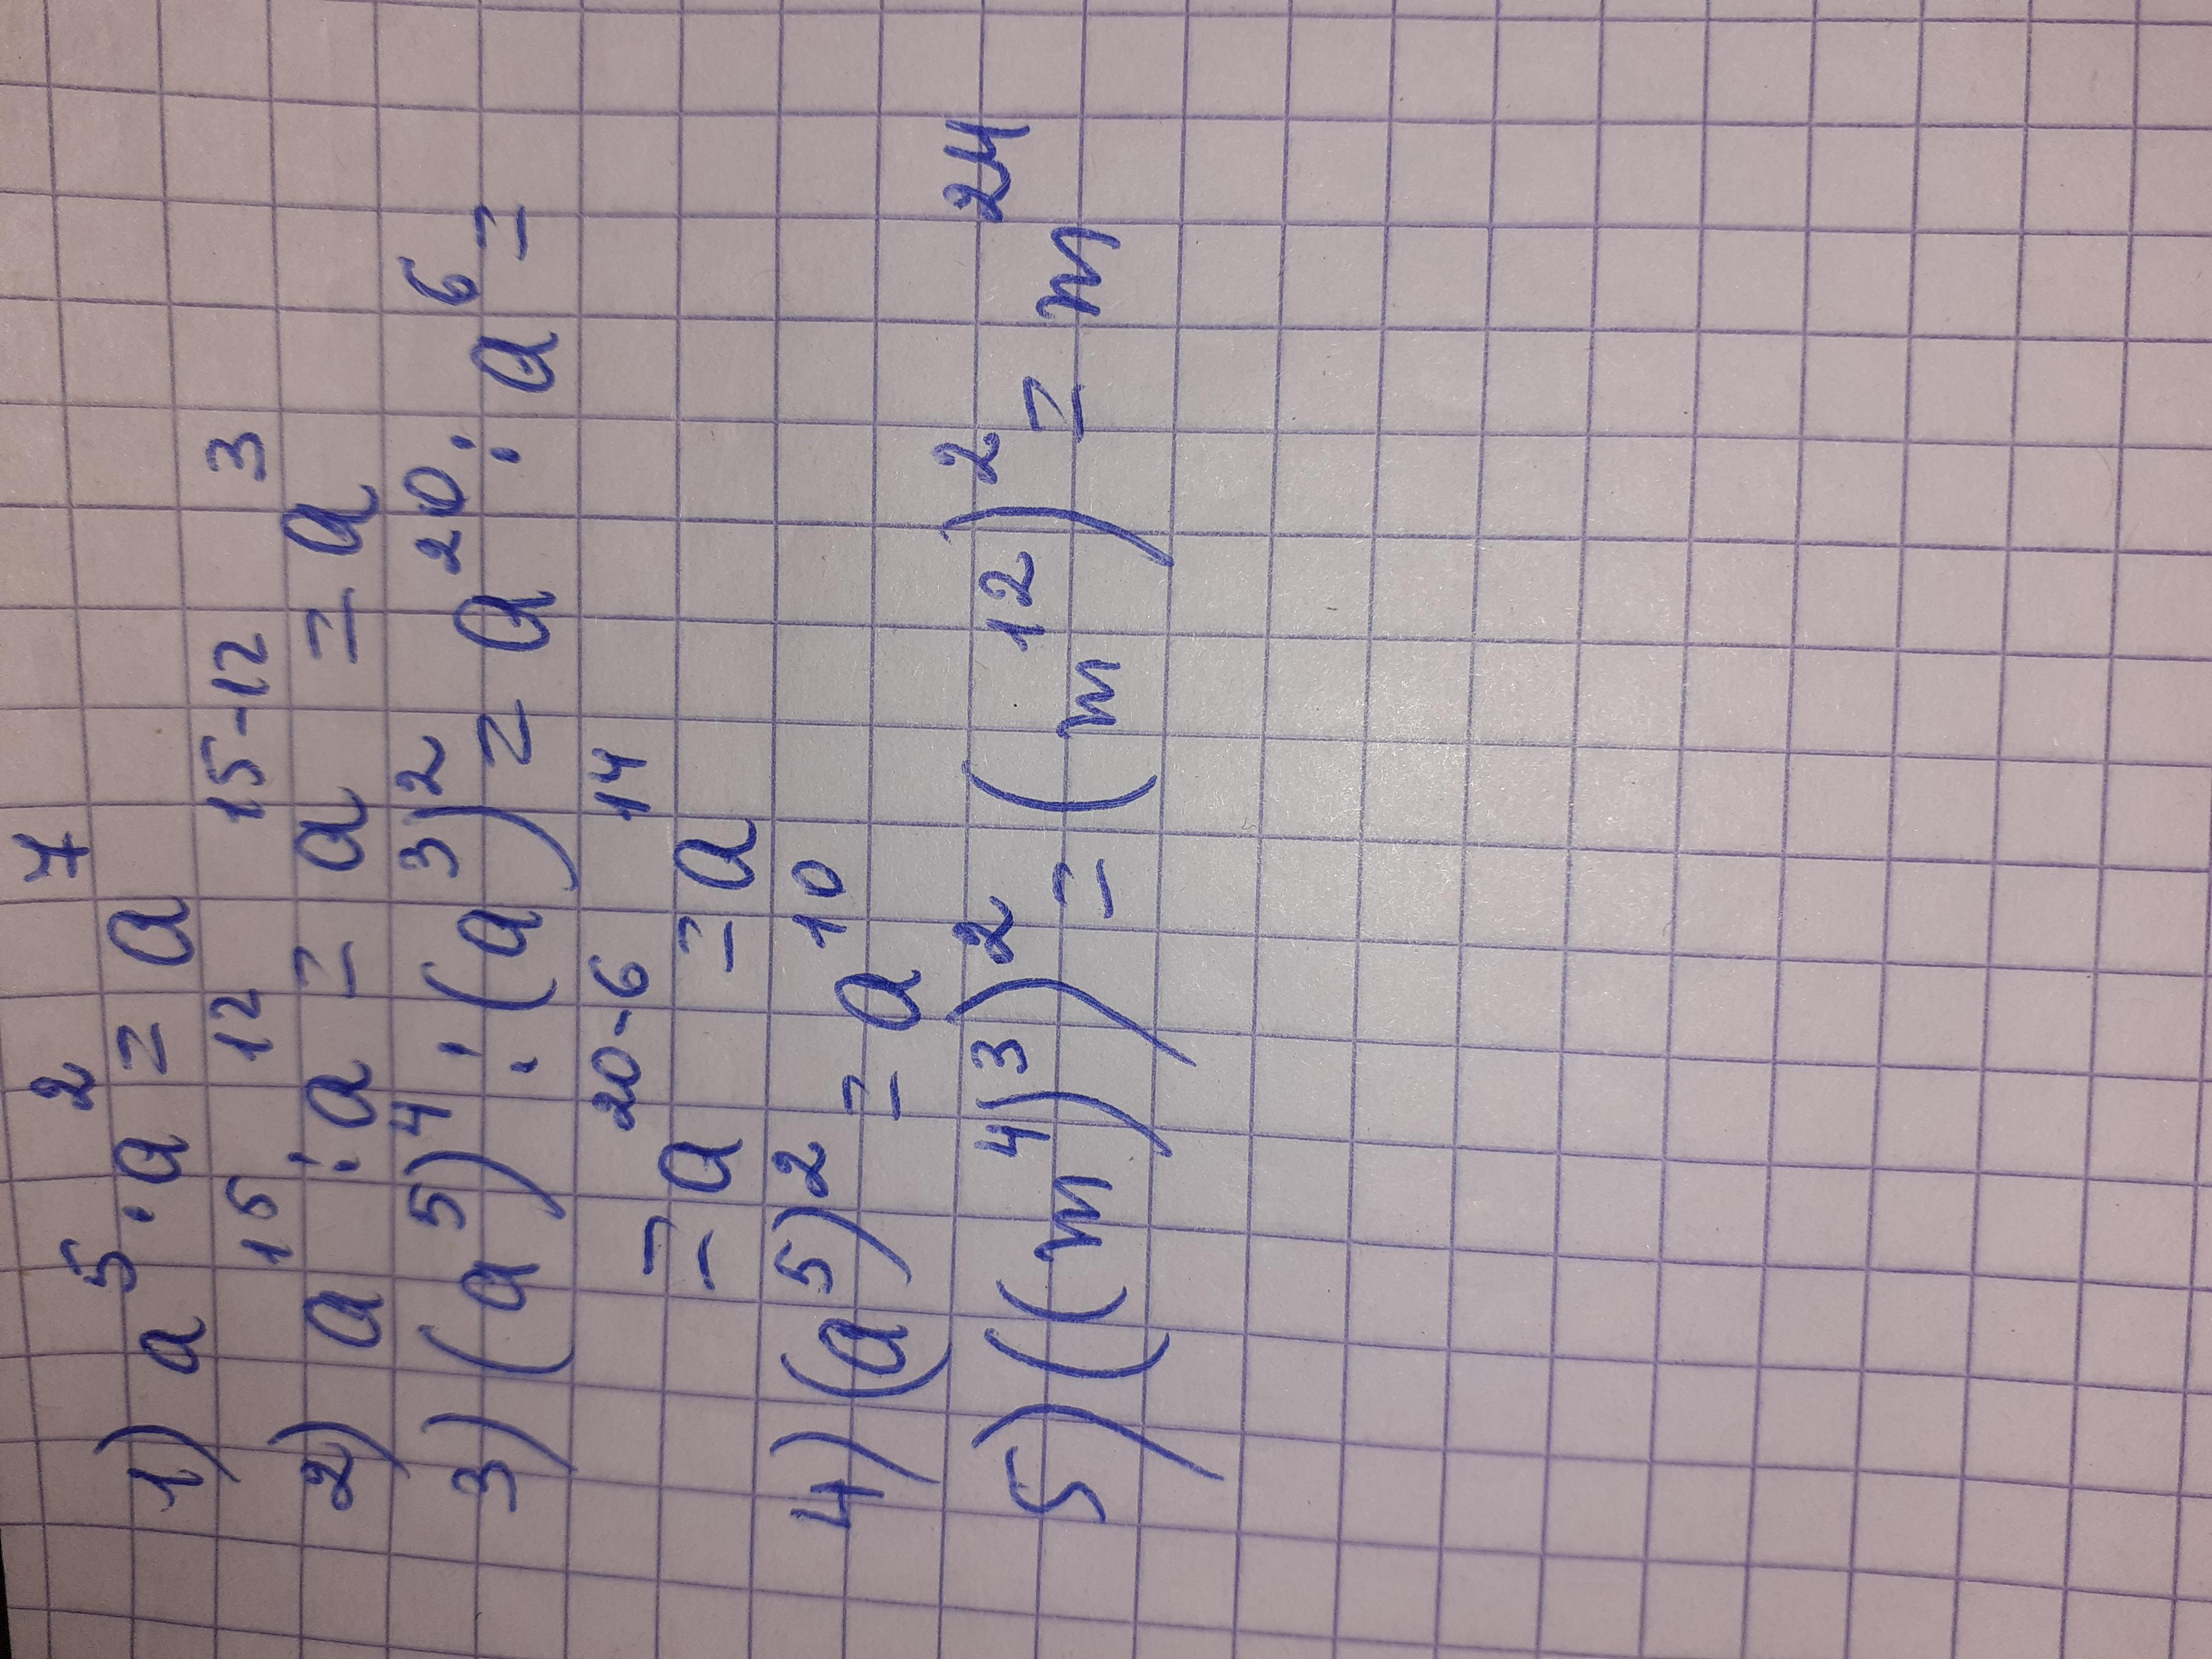 1) a⁵ · a² = a⁷
2) a¹⁵ : a¹² = a¹⁵⁻¹² = a³
3) (a⁵)⁴ : (a³)² = a²⁰ : a⁶ =
= a²⁰⁻⁶ = a¹⁴
4) (a⁵)² = a¹⁰
5) ((m⁴)³)² = (m¹²)² = m²⁴